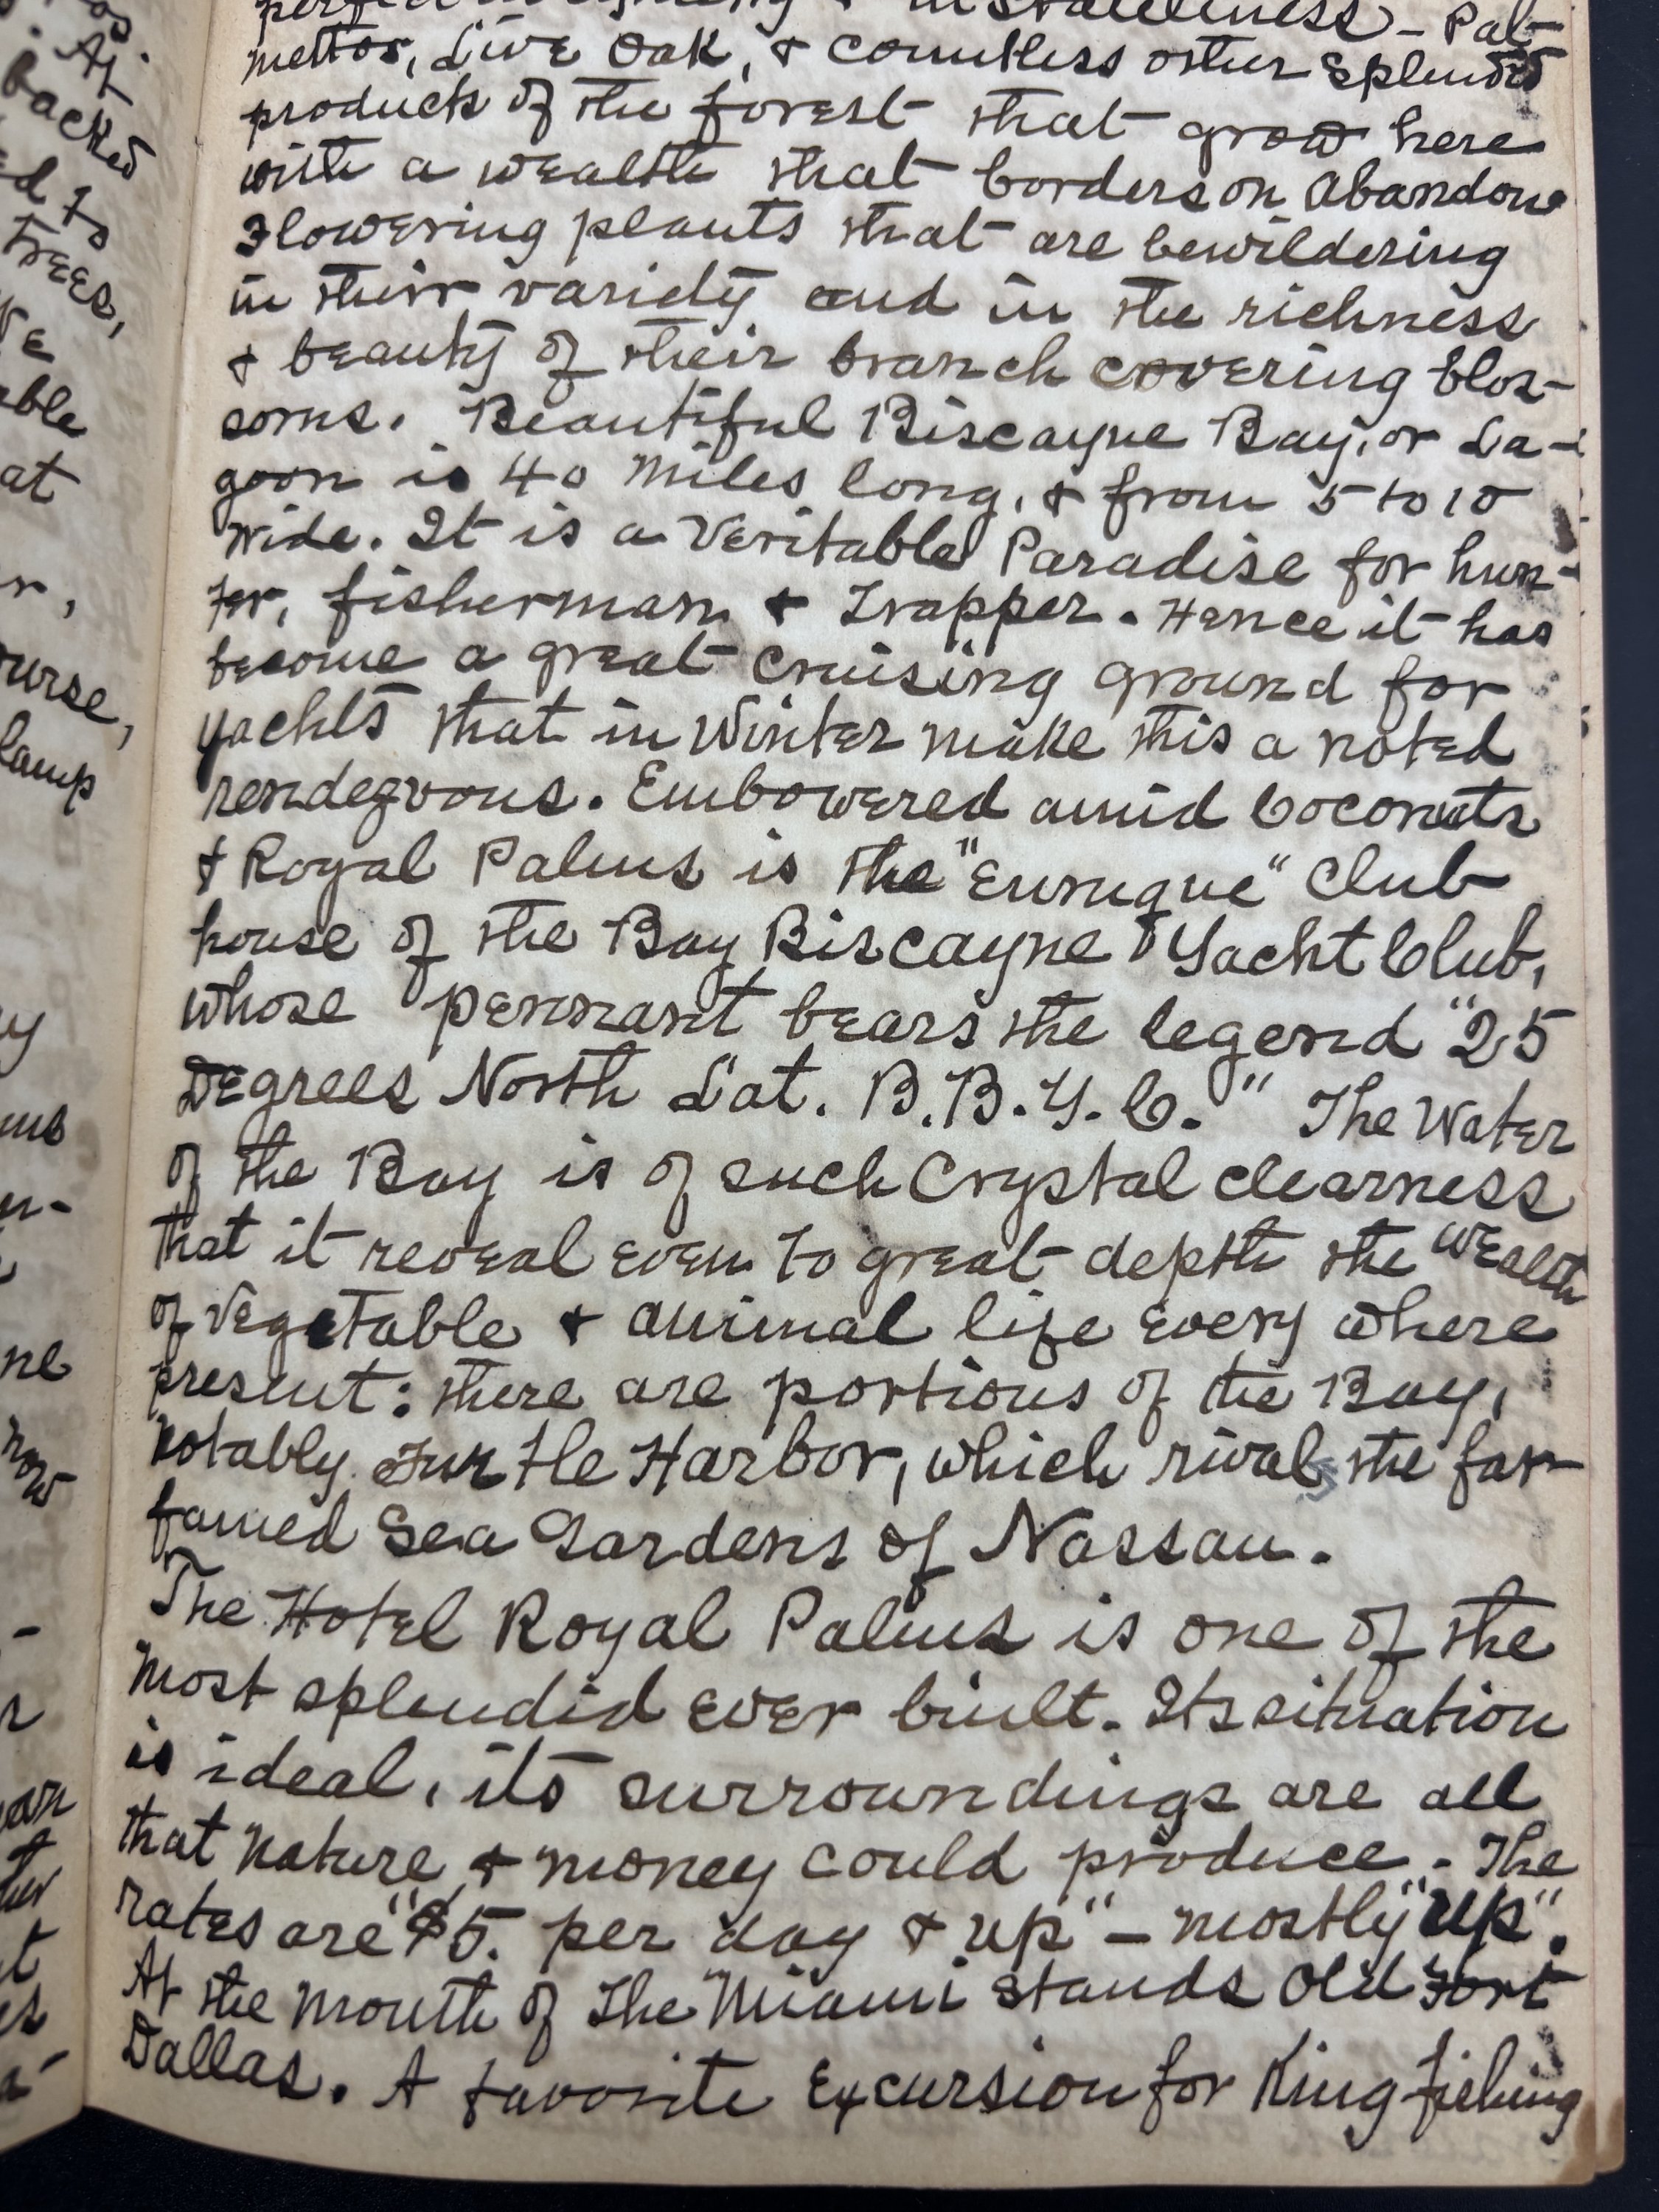 mettos, Live Oak, & countless other splendid
products of the forest that grow here
with a wealth that borders on abandon
Flowering plants that are bewildering
in their variety and in the richness
& beauty of their branch covering blos-
soms. Beautiful Biscayne Bay, or La-
goon is 40 miles long, & from 5 to 10
wide. It is a Veritable Paradise for hun-
ter, fisherman & Trapper. Hence it has
become a great cruising ground for
yachts that in Winter make this a noted
rendezvous. Embowered amid Coconuts
& Royal Palms is the " " Club
house of the Bay Biscayne Yacht Club,
whose pennant bears the legend "25
Degrees North Lat. B.B.Y.C." The Water
of the Bay is of such Crystal clearness
that it reveal even to great depth the wealth
of vegetable & animal life every where
present: there are portions of the Bay,
notably Turtle Harbor, which rivals the far
famed Sea Gardens of Nassau.
The Hotel Royal Palms is one of the
most splendid ever built. Its situation
is ideal, its surroundings are all
that nature & money could produce. The
rates are "$5. per day & up" - mostly "up".
At the mouth of The Miami stands Old Fort
Dallas. A favorite Excursion for King fishing